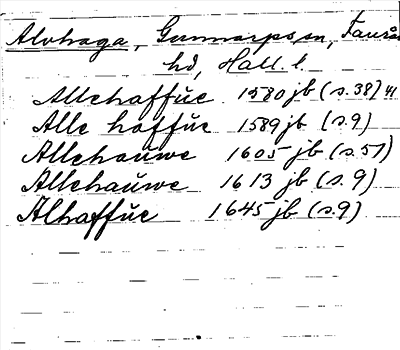 Alvhaga, Gunnarps sn, Faurås
hd, Hall. l.
Allehaffůe 1580 jb (s.38) 41
Alle haffůe 1589 jb (s.9)
Allehaůwe 1605 jb (s.51)
Allehaůwe 1613 jb (s.9)
Alhaffůe 1645 jb (s.9)